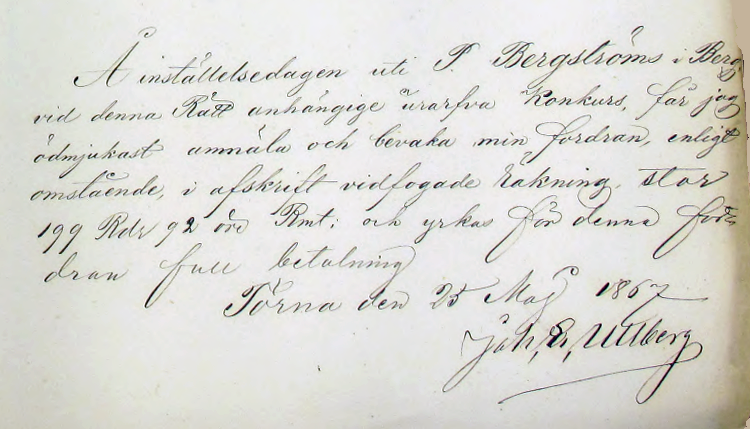 Å inställelsedagen uti P. Bergströms i Berg
vid denna Rätt anhängige urarfva Konkurs, får jag
ödmjukast anmäla och bevaka min fordran, enligt
omstående, i afskrift vidfogade Räkning, stor
199 Rdr 92 öre Rmt; och yrkas för denna for-
dran full betalning
Törna den 25 Maj 1867
Joh, E, Ullberg